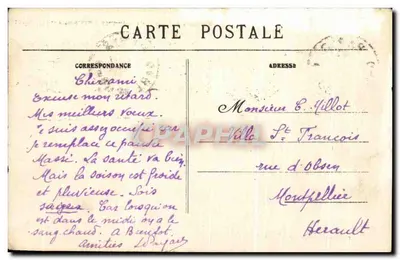 CARTE POSTALE
CORRESPONDANCE
ADRESSE
Cher ami
Excuse mon retard.
Mes meilleurs voeux.
Je suis assez occupé car
je remplace ce pauvre
Massi. La santé va bien
Mais la saison est froide
et pluvieuse. Sois
Car lorsqu'on
est dans le midi on a le
sang chaud. A Bientôt.
Amitiés
Monsieur E. Millot
Villa St François
rue d'
Montpellier
Herault